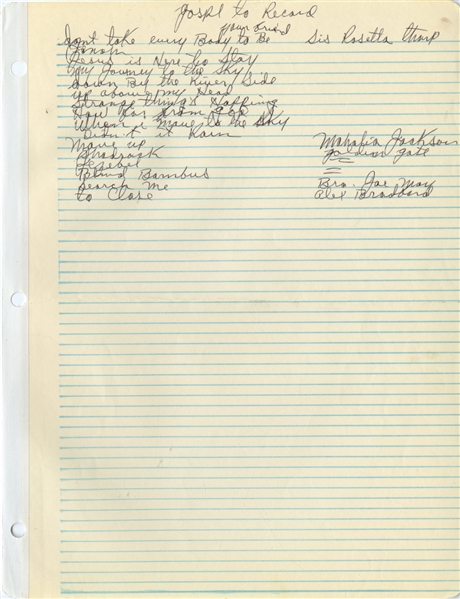 Gospl to Record
dont take every Body to Be your friend Sis Rosetta tharp
Jonah
Jesus is Here to Stay
My Journey to the Sky
down By the River Side
up above my Head
Strange things Happing
How far from God
When i Move to the Sky
Didn't it Rain Mahalia Jackson
Move up
Shadrack Golden Gate
Jezebel =
Blind Barnbus =
Search Me Bro. Joe May
to Close Alex Bradford